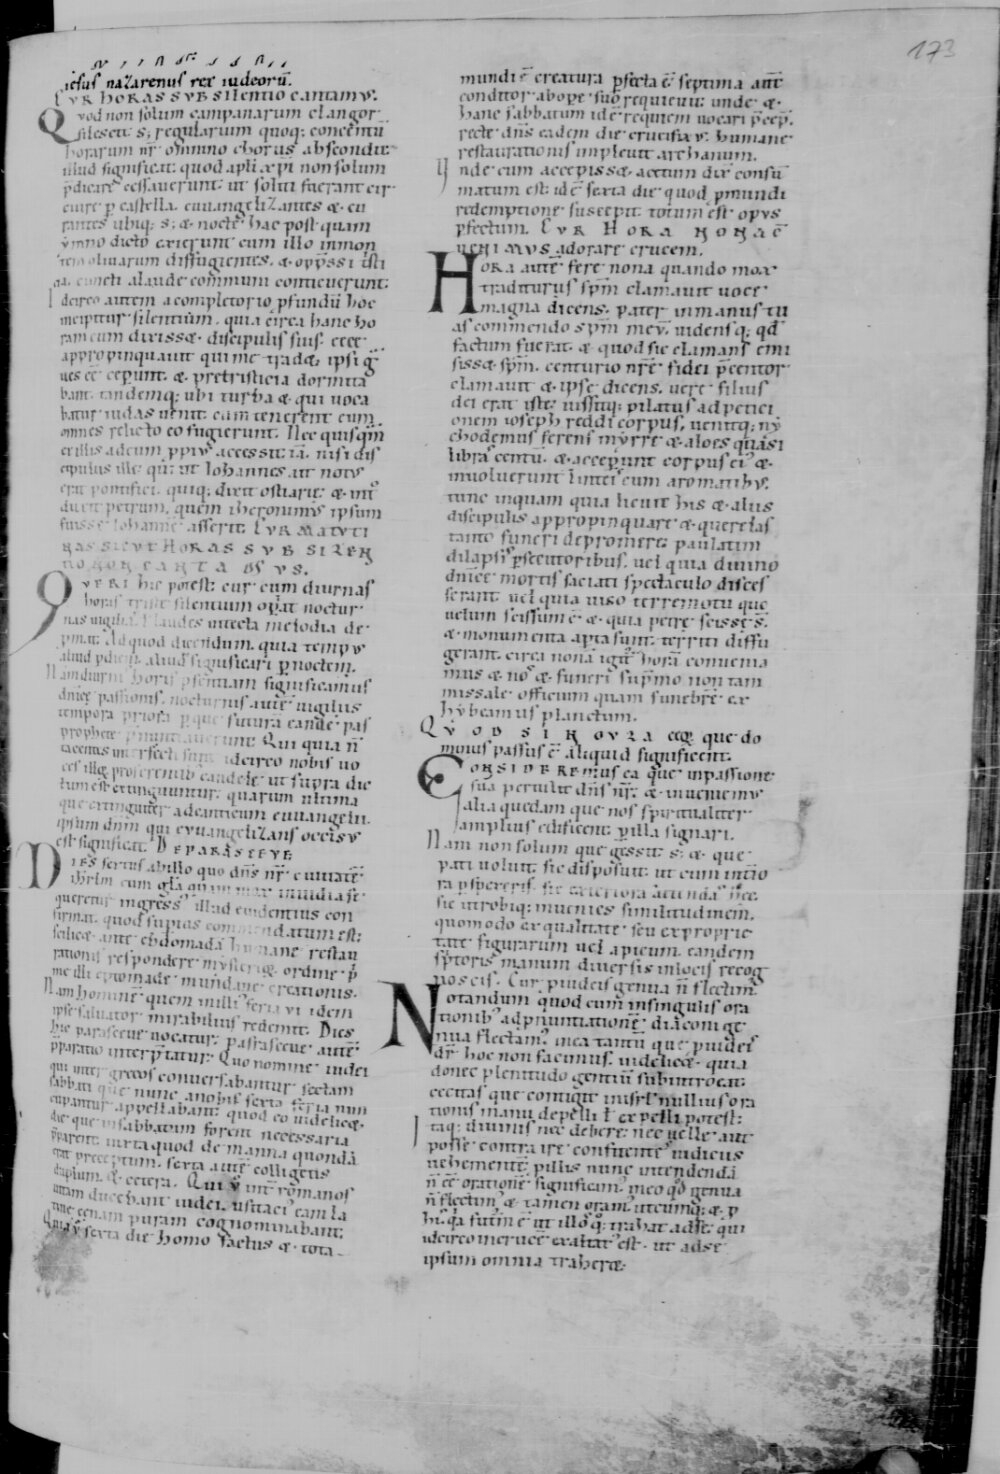 173
iesus nazarenus rex iudeorū.
CVR HORAS SVB SILENTIO CANTAMVS.
Quod non solum campanarum clangor
silescit. s; regularium quoq; concentū
horarum nr̄ omnino chorus abscondit.
illud significat. quod apłi & p̄i non solum
p̄dicare cessauerunt. ut soliti fuerant cir
cuire p castella. euuangelizantes & cu
rantes ubiq; s; & nocte hac post quam
ymno dicto exierunt cum illo inmon
tem oliuarum diffugientes. & opp̄ssi isti
cia. cuncti alaude communi conticuerunt.
Idcirco autem a completorio p̄fundū hoc
incipitur silentium. quia circa hanc ho
ram cum dixiss&. discipulis suis. ecce
appropinquauit qui me trad&. ipsi g̃
ues eē cep̄unt. & pretristicia dormita
bant. tandemq; ubi turba & qui uoca
batur iudas uenit. eum tenerent eum
omnes relicto eo fugierunt. Nec quisqm̄
ex illis ad eum ppius accessit. iā. nisi dis
cipulus ille qui ut Iohannes ait notus
erat pontifici. quiq; dixit ostiarie. & int̄
duxit petrum. quem iheronimus ipsum
fuisse Iohannē asserit. CVR MATVTI
NAS SICVT HORAS SVB SILEN
NO NON CANTABIMVS.
QVERI hic potest. cur cum diurnas
horas triste silentium op̄at noctur
nas uigilia. & laudes intecta melodia de
pmat. Ad quod dicendum. quia tempus
aliud p̄diem. aliud significari p̄noctem.
Nam diurni horis p̄sentiam significamus
dnicē passionis. nocturnis autē uigiliis
tempora priora p que futura eandē pas
prophete p̄nuntiauerunt. Qui quia n̄
tacentes interfecti sunt idcirco nobis uo
ces illoꝝ proferentib; candele ut supra dic
tum est extinguuntur. quarum ultima
que extinguitur ad canticum euuangelii.
ipsum dnm̄ qui euuangelizans occisus
est significat. DE PARASCEVE
DIES sextus ab illo quo dn̄s nr̄ ciuitatē
ihrłm cum glā quam max inuidia se
queretur ingress; illud euidentius con
firmat. quod supius commendatum est.
scilic&. ante ebdomadā humane restau
rationis respondere mysterioꝝ ordine p̄
me illi eptomade mundane creationis.
Nam hominē quem illi feria vi idem
ipse saluator mirabilius redemit. Dies
hic parasceue uocatur. parasceue autē
p̄paratio interp̄tatur. Quo nomine iudei
qui inter grecos conuersabantur sectam
sabbati que nunc anobis sexta feria nun
cupantur appellabant. quod eo uidelic&.
die que insabbatum forent necessaria
p̄parent. iuxta quod de manna quondā
erat preceptum. sexta autē colligetis
duplum. & cetera. Qui v̄ int̄ romanos
uitam ducebant iudei. usitaci; eam la
tine cenam puram cognominabant.
Quia v̄ sexta die homo factus & tota
mundi ē creatura pfecta ē septima autē
conditor abope suo requieuit. unde &
hanc sabbatum idē requiem uocari p̄cep.
recte dn̄s eadem die crucifixus. humanę
restaurationis impleuit archanum.
Vnde cum accepiss& acetum dix̄ consū
matum est. idē sexta die quod p mundi
redemptione suscepit totum est opus
pfectum. CVR HORA NONA Ē
UENIMVS adorare crucem.
HORA autē fere nona quando mox
traditurus spm̄ clamauit uoce
magna dicens. pater inmanus tu
as commendo spm̄ meū. uidensq; qd̄
factum fuerat. & quod sic clamans emi
siss& spm̄. centurio nrē fidei p̄centor
clamauit & ipse dicens. uere filius
dei erat iste. iussitq; pilatus ad petici
onem ioseph reddi corpus. uenitq; ny
chodemus ferens myrre & aloes quasi
libras centū. & accep̄unt corpus ei; &
inuoluerunt linteis cum aromatibus.
tunc inquam quia licuit his & aliis
discipulis appropinquare & querelas
tanto funeri depromere. paulatim
dilapsis p̄secutoribus. uel quia diuino
dnicē mortis saciati spectaculo disces
serant. uel quia uiso terremotu quo
uelum scissum ē & quia petrę scissę s̄.
& monumenta apta sunt. territi diffu
gerant. circa nonā igit̄ horā conuenia
mus & nos & funeri sup̄mo non tam
missale officium quam funebrē ex
hybeamus planctum.
QVOD SINGVLA ecce que do
minus passus ē aliquid significent.
CONSIDEREMUS ea que inpassione
sua pertulit dn̄s nr̄. & inueniemus
alia quedam que nos spiritualiter
amplius edificent. p illa signari.
Nam non solum que gessit. s; & que
pati uoluit. sic disposuit. ut cum int̄io
ra pspexeris. sic exteriora attendas nec
sic utrobiq; inuenies similitudinem.
quomodo ex qualitate seu ex proprie
tate figurarum uel apicum. eandem
sp̄toris manum diuersis inlocis recog
noscis. Cur p iudeis genua n̄ flectim;
Notandum quod cum insingulis ora
tionib; ad pnuntiationē diaconi ge
nua flectam; inea tantū que p iudeis
dr̄ hoc non facimus. uidelic&. quia
donec plenitudo gentiū subintroeat.
cecitas que contigit inisrł nullius ora
tionis manu depelli ł expelli potest.
Itaq; diuinis nec debere. nec uelle aut
posse contra ire confitentes iudiciis
uehementē pillis nunc intendendā
n̄ eē orationē significam; ineo qd̄ genua
n̄ flectim; & tamen oram; utcumq; & p
his qa futurū ē ut illos qoq; trahat adsē qui
idcirco incrucē exaltat; est. ut adse
ipsum omnia traher&.